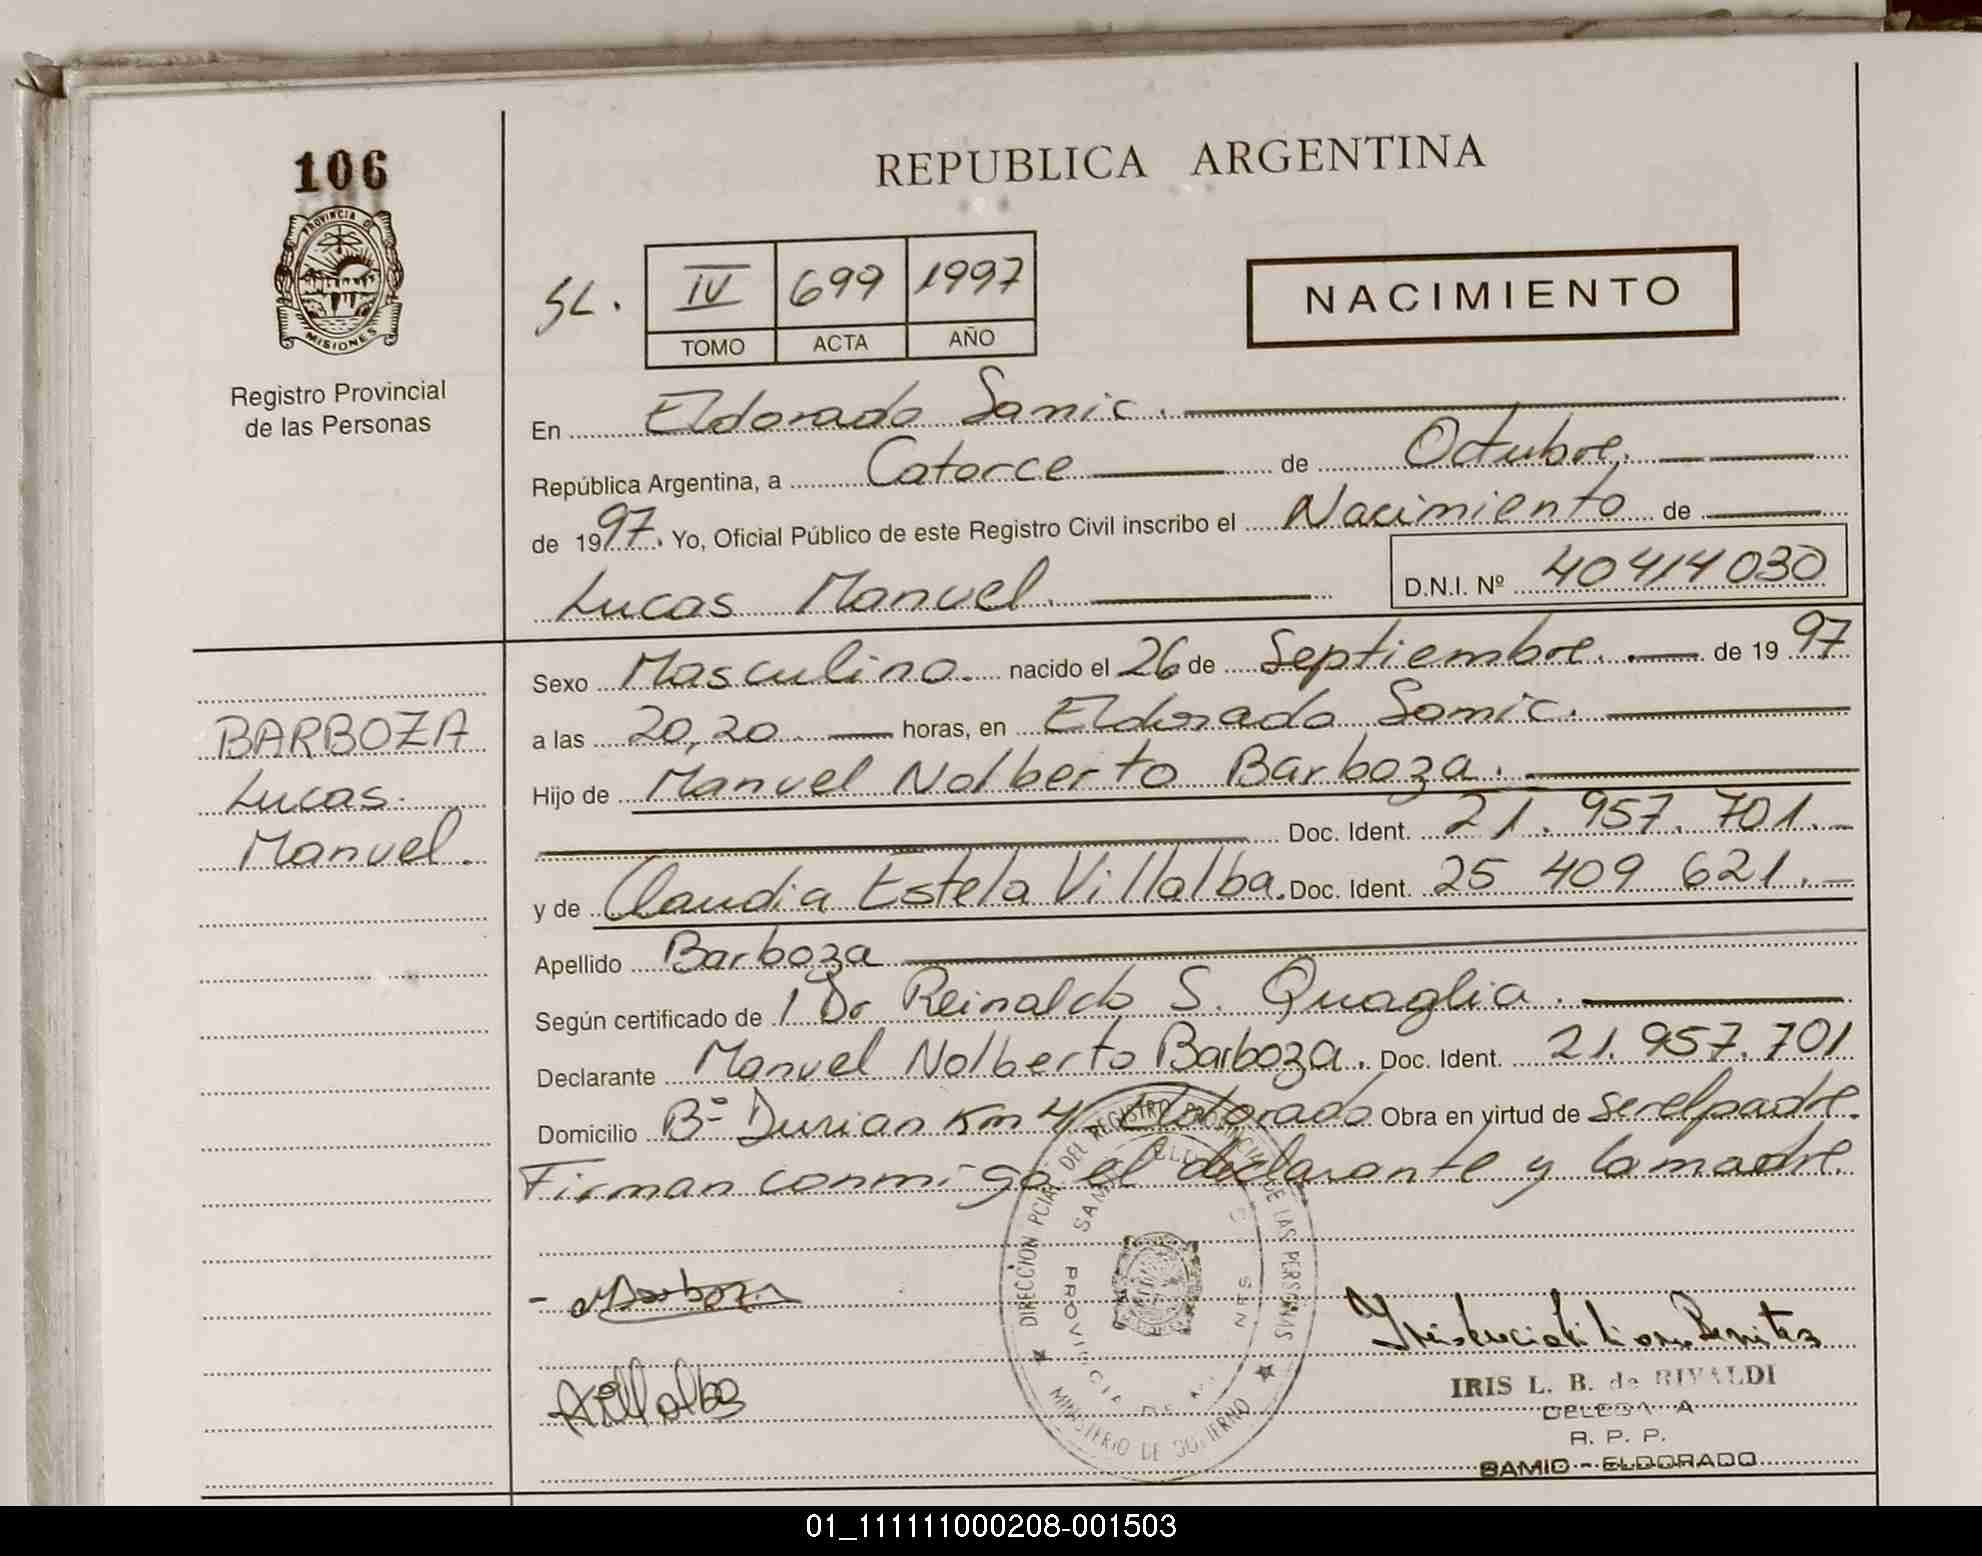 106
PROVINCIA DE
MISIONES
Registro Provincial
de las Personas
REPUBLICA ARGENTINA
SL. IV 699 1997
TOMO ACTA AÑO
NACIMIENTO
En Eldorado Samic.
República Argentina, a Catorce de Octubre.
de 1997. Yo, Oficial Público de este Registro Civil inscribo el Nacimiento de
Lucas Manuel. D.N.I. Nº 40414030
Sexo Masculino. nacido el 26 de Septiembre. de 1997
a las 20,20 horas, en Eldorado Samic.
Hijo de Manuel Nolberto Barboza.
Doc. Ident. 21.957.701.
y de Claudia Estela Villalba. Doc. Ident. 25 409 621.
Apellido Barboza
Según certificado de 1 Dr Reinaldo S. Quaglia.
Declarante Manuel Nolberto Barboza. Doc. Ident. 21.957.701
Domicilio Bº Km 4 Eldorado Obra en virtud de ser el padre.
Firman conmigo el declarante y la madre.
BARBOZA
Lucas
Manuel.
DIRECCION PCIAL DEL REGISTRO PROVINCIAL DE LAS PERSONAS
MINISTERIO DE GOBIERNO
PROVINCIA DE
Barboza
Villalba
IRIS L. B. de RIVALDI
DELEGADA
R. P. P.
SAMIC - ELDORADO
01_111111000208-001503